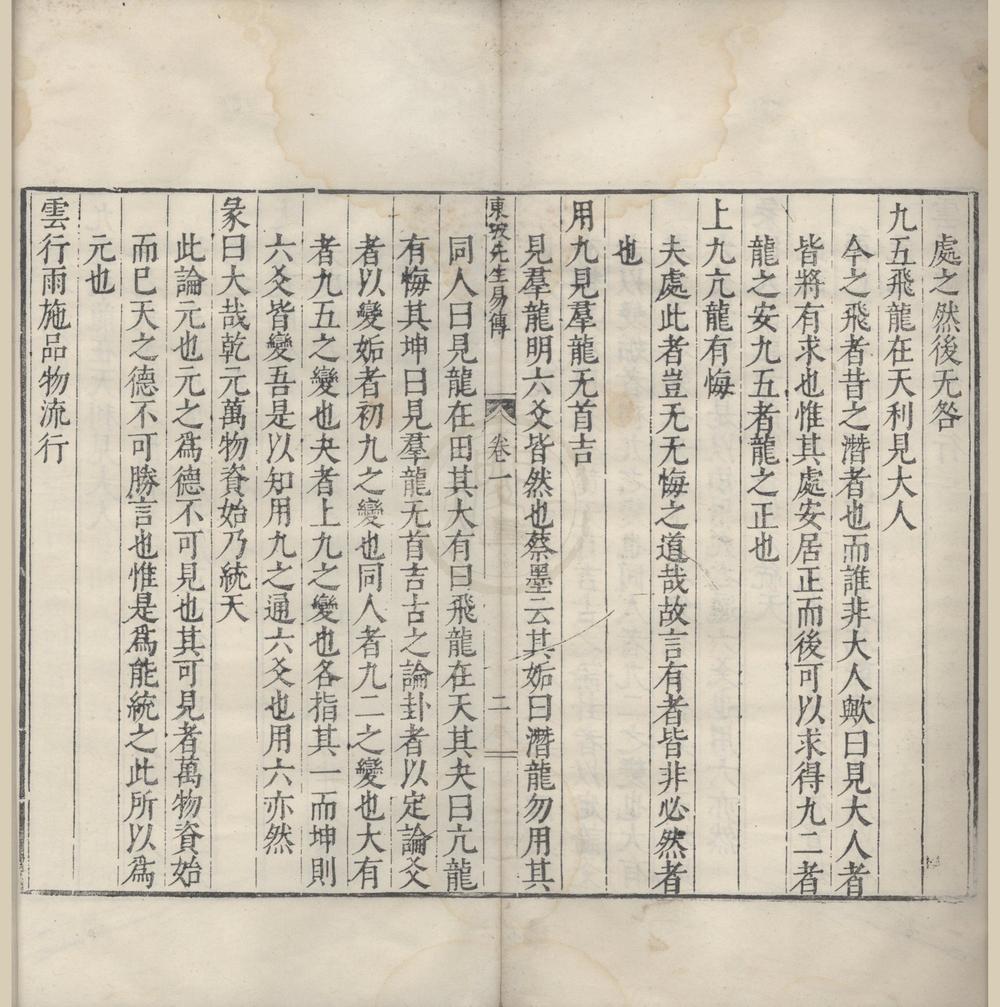 處之然後无咎
九五飛龍在天利見大人
今之飛者昔之潛者也而誰非大人歟曰見大人者
皆將有求也惟其處安居正而後可以求得九二者
龍之安九五者龍之正也
上九亢龍有悔
夫處此者豈无无悔之道哉故言有者皆非必然者
也
用九見羣龍无首吉
見羣龍明六爻皆然也蔡墨云其姤曰潛龍勿用其
東坡先生易傳
卷一
二
同人曰見龍在田其大有曰飛龍在天其夬曰亢龍
有悔其坤曰見羣龍无首吉古之論卦者以定論爻
者以變姤者初九之變也同人者九二之變也大有
者九五之變也夬者上九之變也各指其一而坤則
六爻皆變吾是以知用九之通六爻也用六亦然
彖曰大哉乾元萬物資始乃統天
此論元也元之爲德不可見也其可見者萬物資始
而已天之德不可勝言也惟是爲能統之此所以爲
元也
雲行雨施品物流行